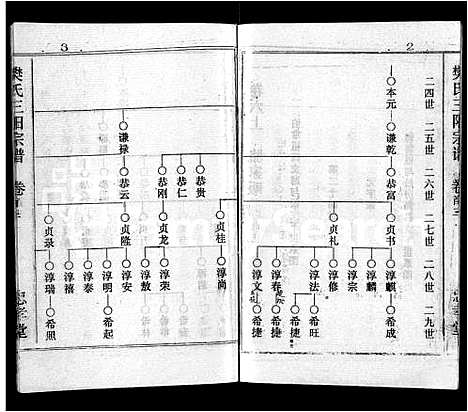 2
樊氏三阳宗谱 卷首三
忠孝堂
二四世 二五世 二六世 二七世 二八世 二九世
本元 谦乾 恭富 贞书 淳麒 希成
淳麟
淳宗
贞礼 淳修
淳法 希旺
希捷
淳春 希捷
淳文
3
贞桂 淳尚
恭贵
恭仁
恭刚 贞龙 淳荣
淳敖
谦禄 恭云 贞隆 淳安
淳明 希起
淳泰
淳禧
贞录 淳瑞 希照
樊氏三阳宗谱 卷首三
忠孝堂